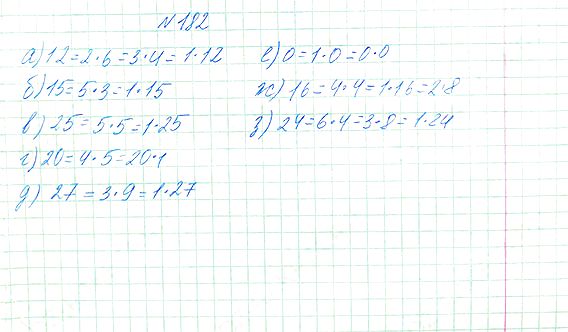 №182
а) 12=2·6=3·4=1·12
б) 15=5·3=1·15
в) 25=5·5=1·25
г) 20=4·5=20·1
д) 27=3·9=1·27
е) 0=1·0=0·0
ж) 16=4·4=1·16=2·8
з) 24=6·4=3·8=1·24